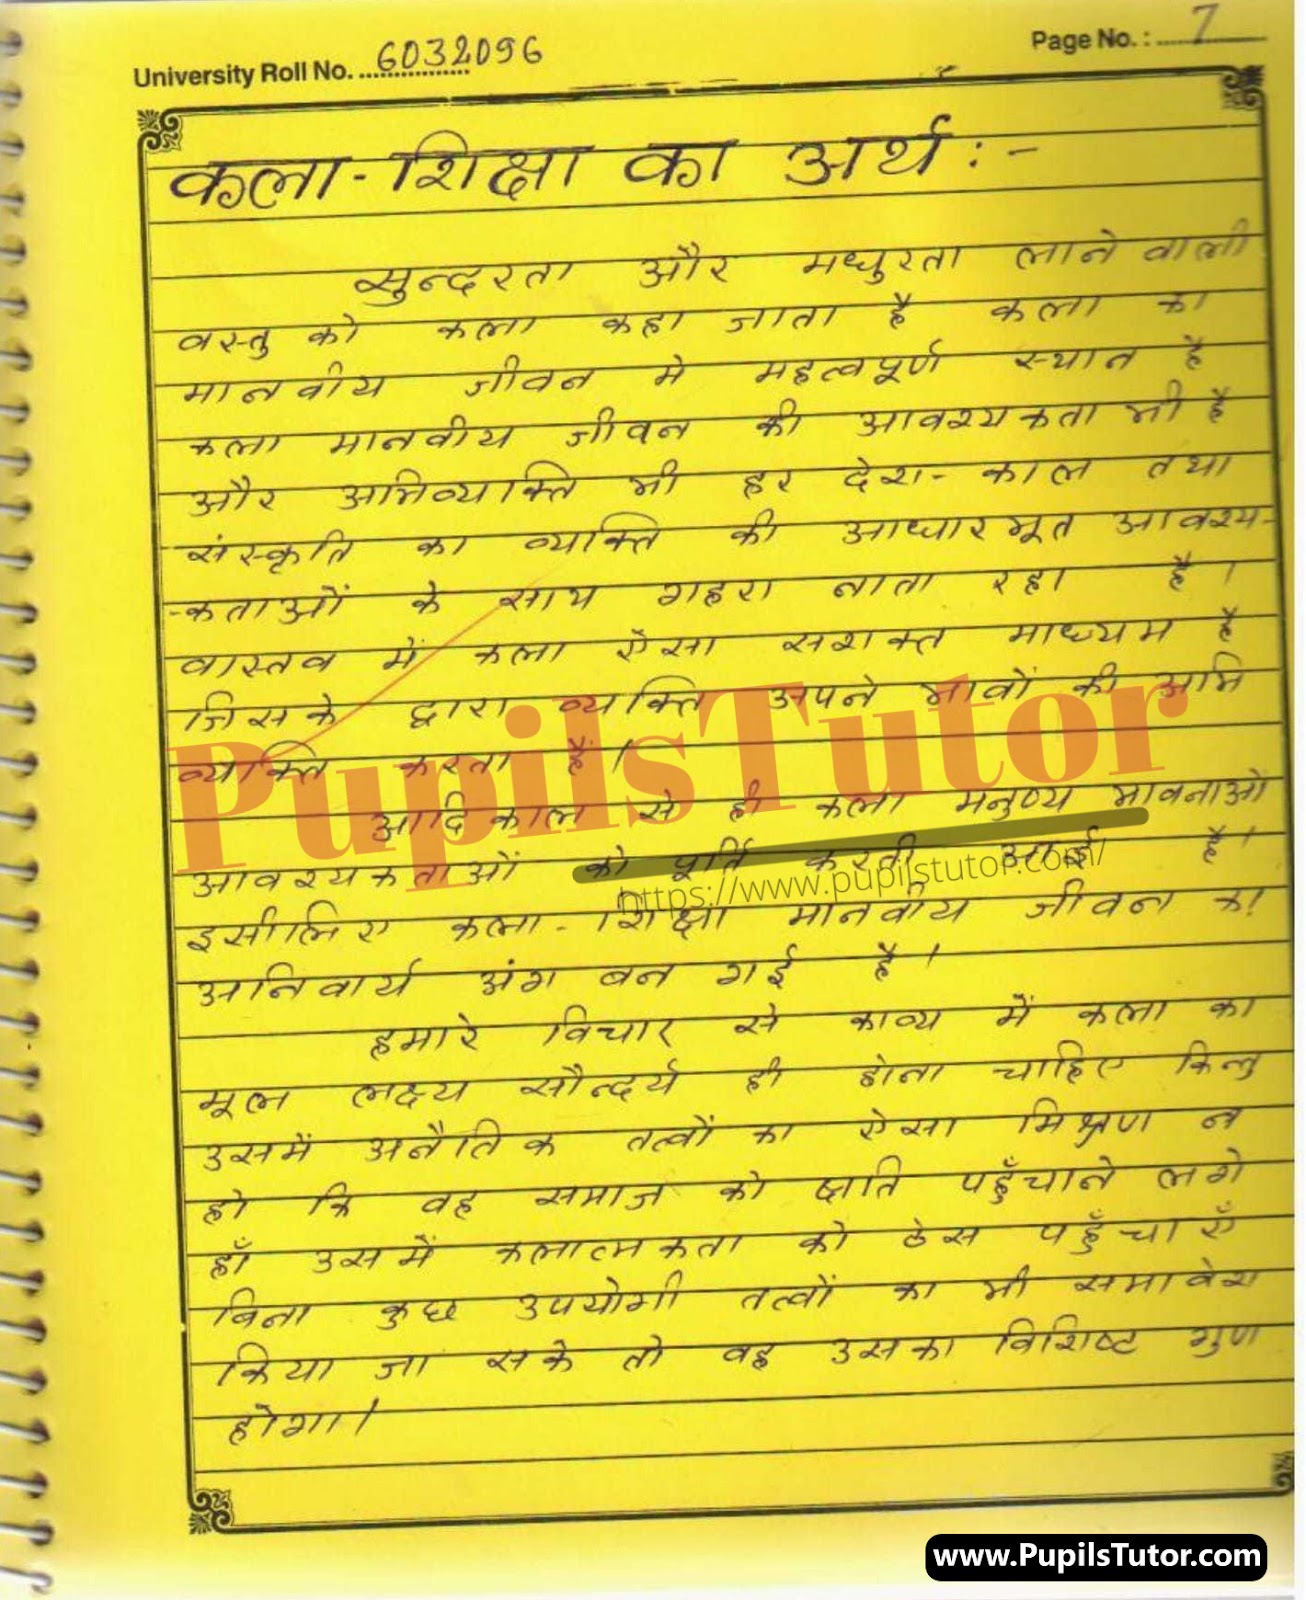 University Roll No. 6032096
Page No. : 7
कला - शिक्षा का अर्थ : -
सुन्दरता और मधुरता लाने वाली
वस्तु को कला कहा जाता है कला का
मानवीय जीवन मे महत्वपूर्ण स्थान है
कला मानवीय जीवन की आवश्यकता भी है
और अभिव्यक्ति भी हर देश - काल तथा
संस्कृति का व्यक्ति की आधारभूत आवश्य-
-कताओं के साथ गहरा नाता रहा है ।
वास्तव में कला ऐसा सशक्त माध्यम है
जिसके द्वारा व्यक्ति अपने भावों की अभि
व्यक्ति करता है ।
PupilsTutor
आदिकाल से ही कला मनुष्य भावनाओं
आवश्यकताओं को पूर्ति करती आई है ।
https://www.pupilstutor.com/
इसीलिए कला - शिक्षा मानवीय जीवन का
अनिवार्य अंग बन गई है ।
हमारे विचार से काव्य में कला का
मूल लक्ष्य सौन्दर्य ही होना चाहिए किन्तु
उसमें अनैतिक तत्वों का ऐसा मिश्रण न
हो कि वह समाज को क्षति पहुँचाने लगे
हाँ उसमें कलात्मकता को ठेस पहुँचाएँ
बिना कुछ उपयोगी तत्वों का भी समावेश
किया जा सके तो वह उसका विशिष्ट गुण
होगा ।
www.PupilsTutor.com